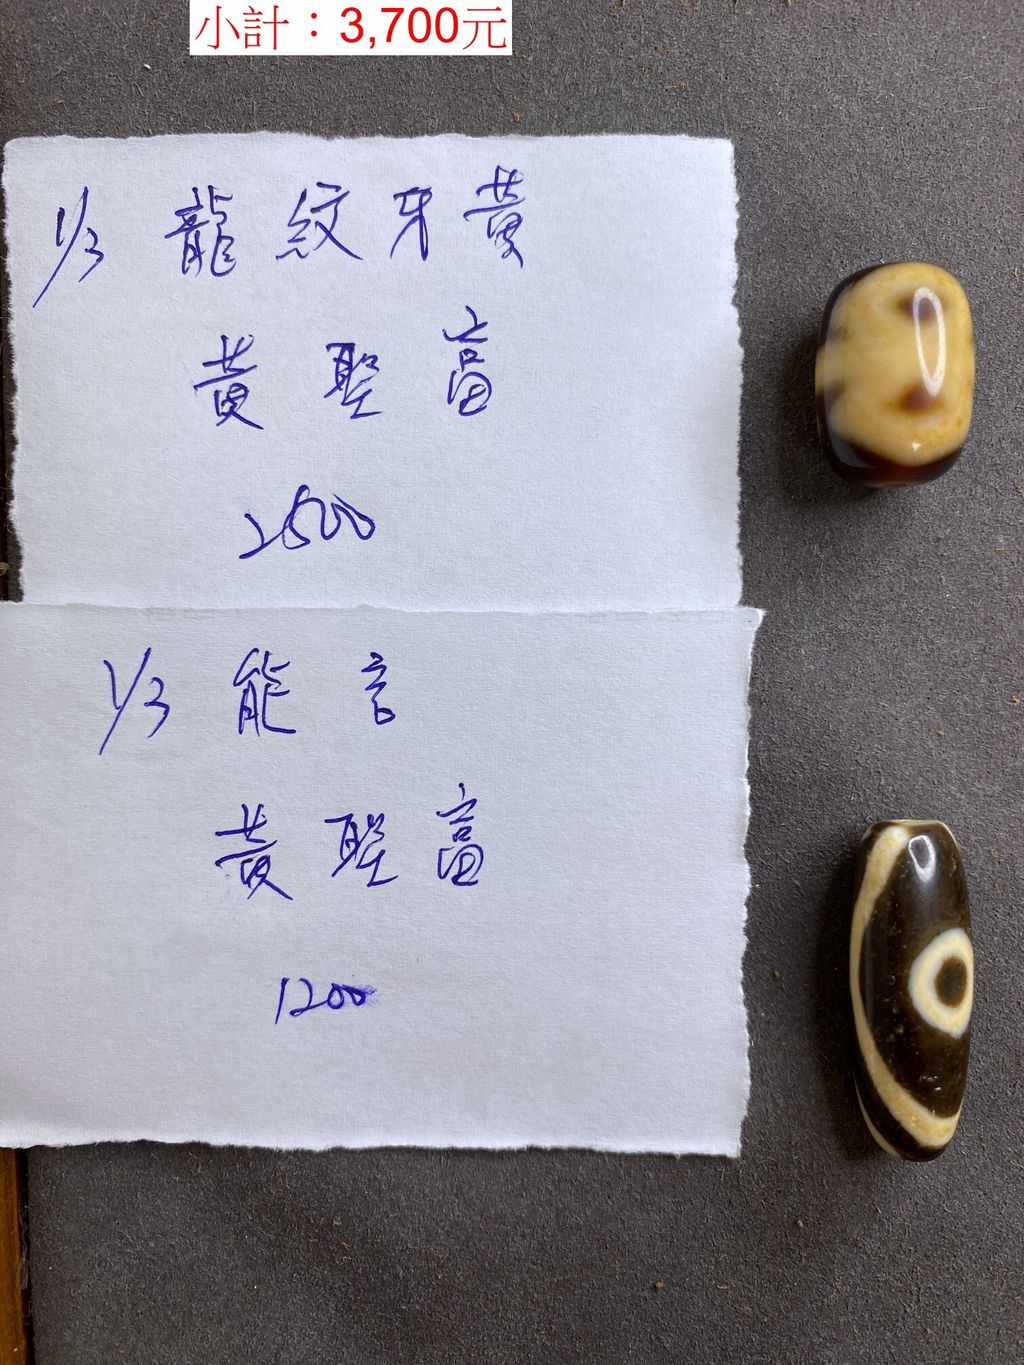 小計：3,700元
1/3 龍紋牙黄
黄聖富
2500
1/3 能言
黄聖富
1200